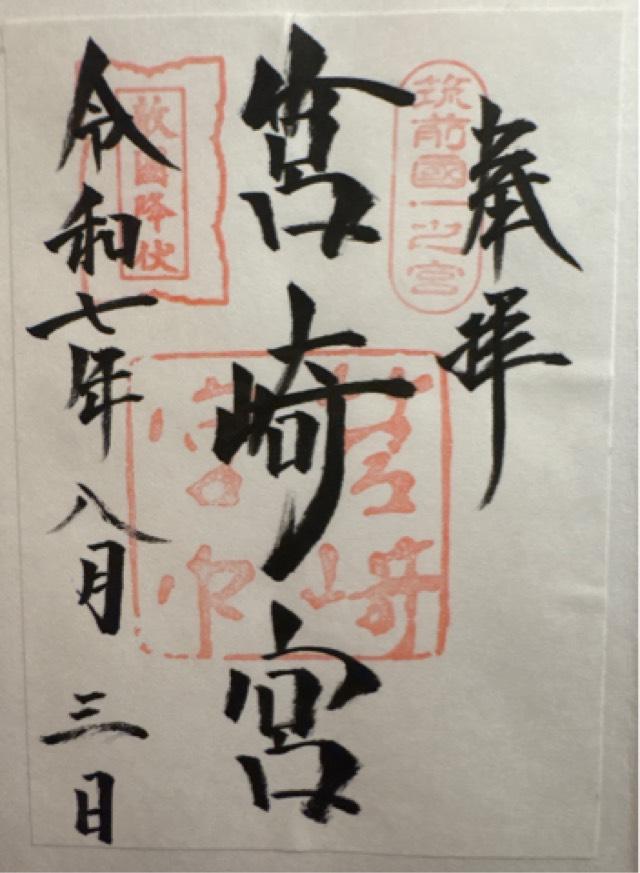 奉拝
筑前國一之宮
筥崎宮
筥崎
宮印
敵國降伏
令和七年八月三日